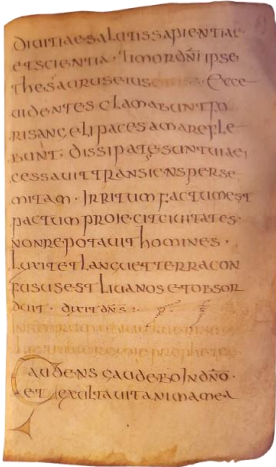 diuitiae salutis sapientiae
et scientia · timor dn̄i ipse
thesaurus eius Ecce
uidentes clamabunt fo
ris angeli paces amare fle
bunt · dissipate sunt uiae
cessauit transiens per se
mitam · irritum factum est
pactum proiecit ciuitates
non repotauit homines ·
luxit et languet terra con
fusus est liuanos et obsor
duit · dixit dn̄s :
Gaudens gaudebo in dn̄o ·
et exultauit anima mea